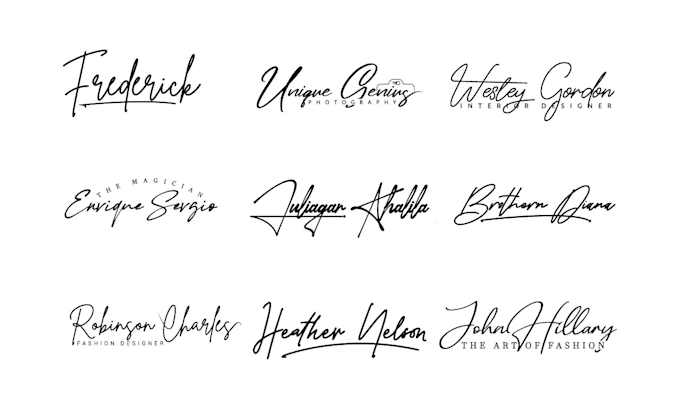 Frederick
Unique Genius
PHOTOGRAPHY
Wesley Gordon
INTERIOR DESIGNER
THE MAGICIAN
Enrique Sergio
Juliagan Athalila
Brothern Diana
Robinson Charles
FASHION DESIGNER
Heather Nelson
John Hillary
THE ART OF FASHION